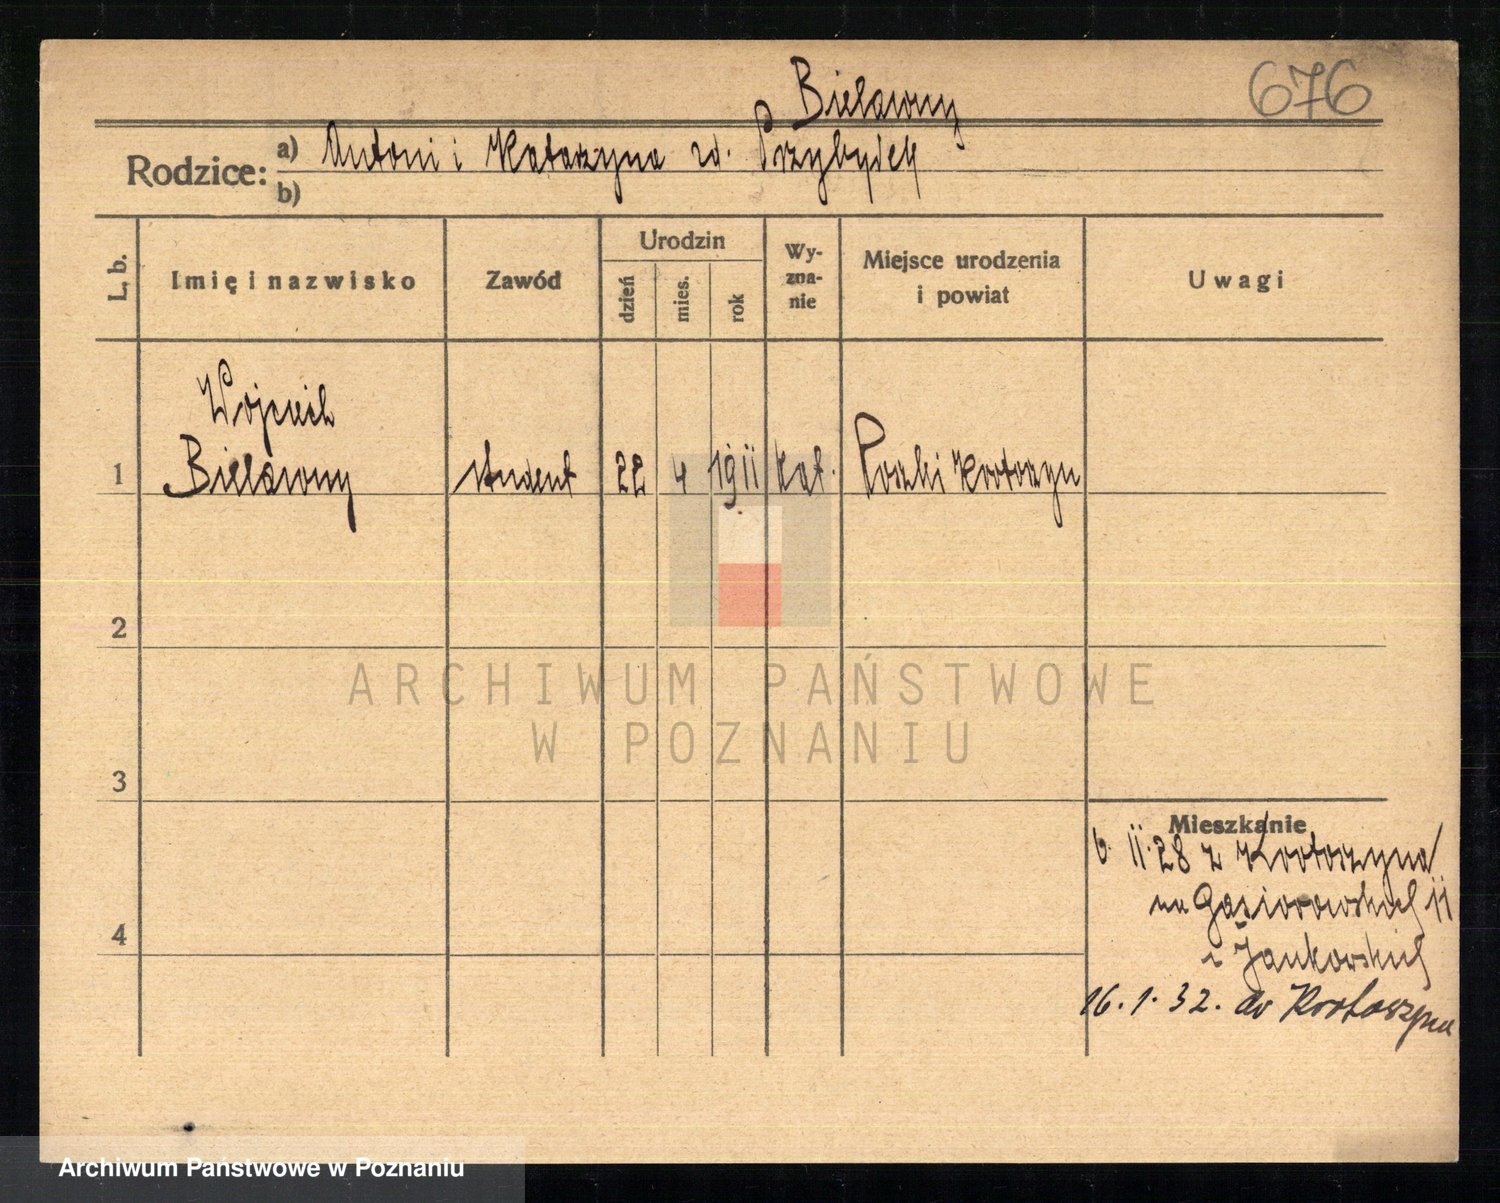 676
Bielawny
Rodzice: a) Antoni i Katarzyna zd. Przybyłek
b)
L. b. Imię i nazwisko Zawód Urodzin dzień mies. rok Wy-zna-nie Miejsce urodzenia i powiat Uwagi
Wojciech
1 Bielawny student 22 4 1911 kat. Krotoszyn
2
ARCHIWUM PAŃSTWOWE
W POZNANIU
3
Mieszkanie
6. 11. 28 z Krotoszyna
na Gąsiorowskich 11
Jankowskich
4
16. 1. 32. do Krotoszyna
Archiwum Państwowe w Poznaniu